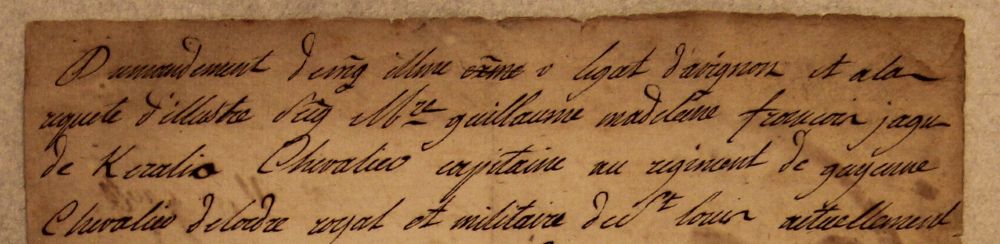 Dumandement de mg illme v legat d'avignon et a la
requete d'illustre Seig Mre guillaume madelaine francois jaqu
de Keralio Chevalier capitaine au regiment de guyenne
Chevalier delordre royal et militaire de St louis actuellement